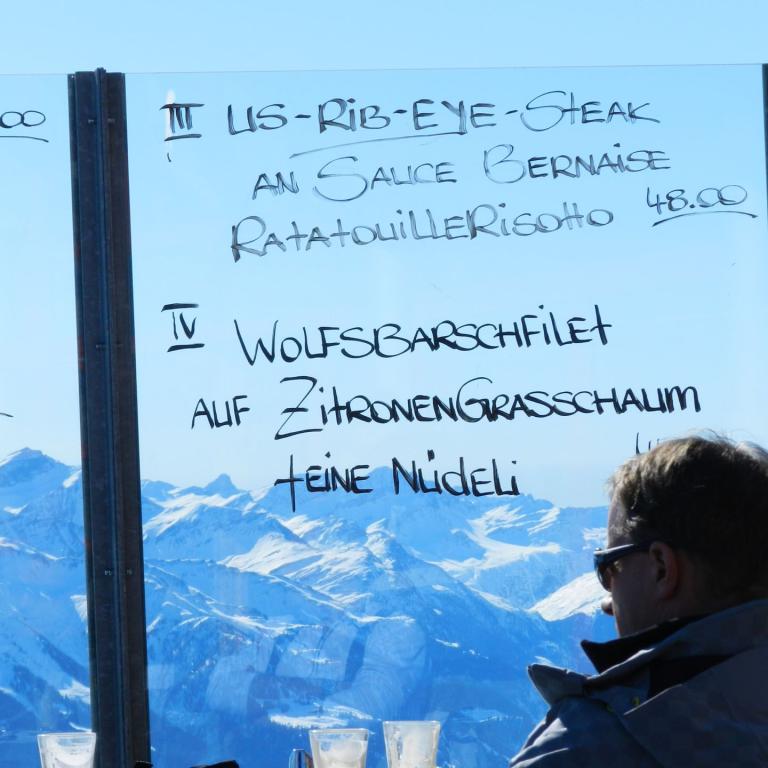 00
III US-RIB-EYE-STEAK
AN SAUCE BERNAISE
RATATOUILLERISOTTO 48.00
IV WOLFSBARSCHFILET
AUF ZITRONENGRASSCHAUM
FEINE NÜDELI